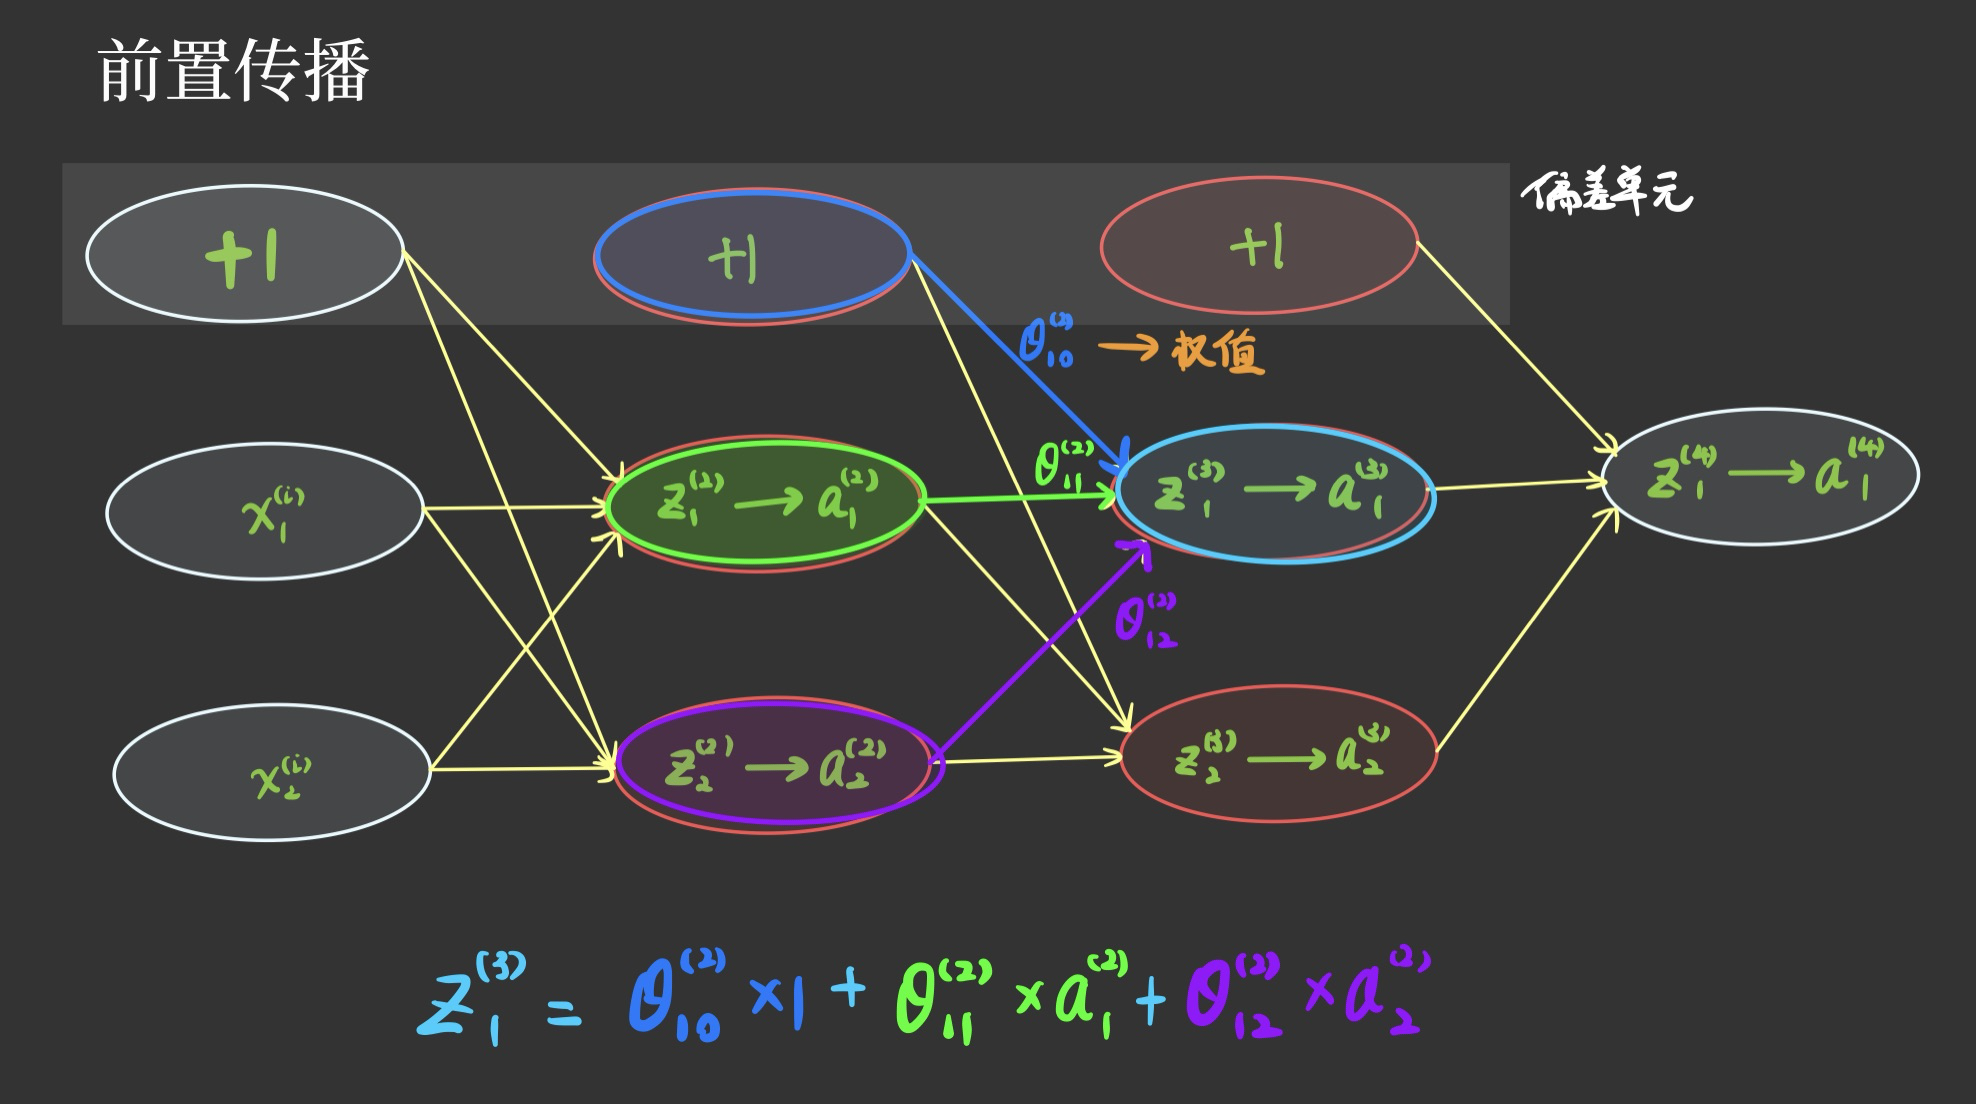 前置传播
+1 +1 +1 偏差单元
θ₁₀⁽²⁾ → 权值
θ₁₁⁽²⁾
x₁⁽ⁱ⁾ z₁⁽²⁾ → a₁⁽²⁾ z₁⁽³⁾ → a₁⁽³⁾ z₁⁽⁴⁾ → a₁⁽⁴⁾
θ₁₂⁽²⁾
x₂⁽ⁱ⁾ z₂⁽²⁾ → a₂⁽²⁾ z₂⁽³⁾ → a₂⁽³⁾
z₁⁽³⁾ = θ₁₀⁽²⁾ × 1 + θ₁₁⁽²⁾ × a₁⁽²⁾ + θ₁₂⁽²⁾ × a₂⁽²⁾